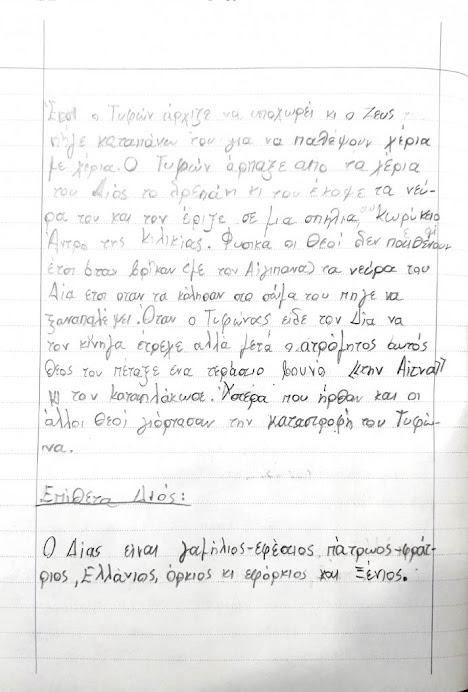 Έτσι ο Τυφών άρχιζε να υποχωρεί κι ο Ζευς
πήγε καταπάνω του για να παλέψουν χέρια
με χέρια. Ο Τυφών άρπαξε απο τα χέρια
του Διός το δρεπάνι κι του έκοψε τα νεύ-
ρα του και τον έριξε σε μια σπηλια, Κωρύκειο
Άντρο της Κιλικίας. Φυσικα οι Θεοί δεν
έτσι όταν βρίκαν (με τον Αιγιπανα) τα νεύρα του
Δία έτσι οταν τα κόλησαν στο σώμα του πηγε να
ξαναπαλέψει. Όταν ο Τυφώνας είδε τον Δία να
τον κινηγα έτρεχε αλλά μετά ο ατρόμητος αυτός
Θεος του πέταξε ένα τεράστιο βουνο «την Αίτνα»
κι τον καταπλάκωσε. Ύστερα που ήρθαν και οι
άλλοι Θεοί γιόρτασαν την καταστροφή του Τυφώ-
να.
Επίθετα Διός:
Ο Δίας είναι γαμήλιος-εφέσιος πάτρωος-φράτ-
ριος, Ελλάνιος, όρκιος κι εφόρκιος και Ξένιος.